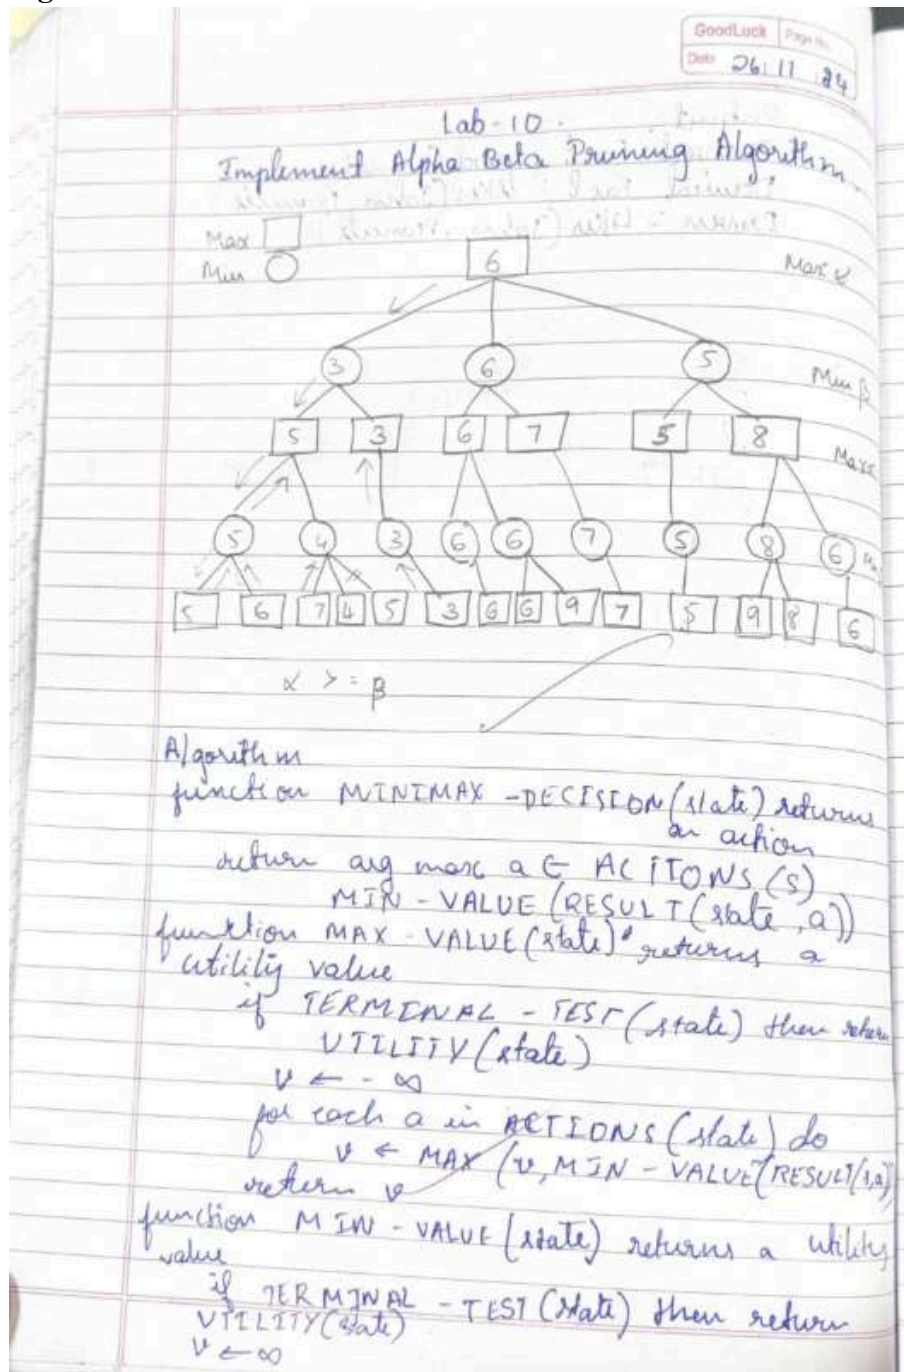 GoodLuck Page No.
Date 26 11 24
Lab-10.
Implement Alpha Beta Pruning Algorithm.
Max
Min
6 Max
3 6 5 Min β
5 3 6 7 5 8 Max
5 4 3 6 6 7 5 8 6
5 6 7 4 5 3 6 6 9 7 5 9 8 6
α >= β
Algorithm
function MINIMAX -DECISION(state) returns
an action
return arg max a ∈ ACITONS(S)
MIN - VALUE (RESULT (state, a))
function MAX - VALUE (state) returns a
utility value
if TERMINAL - TEST (state) then return
UTILITY (state)
v ← - ∞
for each a in ACTIONS (state) do
v ← MAX (v, MIN - VALUE (RESULT (s,a)
return v
function MIN - VALUE (state) returns a utility
value
if TERMINAL - TEST (state) then return
UTILITY (state)
v ← ∞